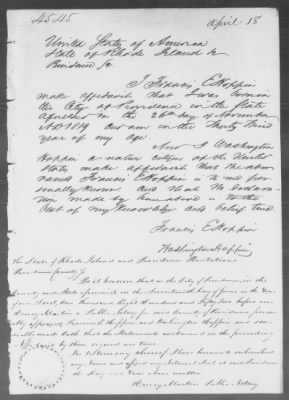 4545
April 18
United States of America
State of Rhode Island &
Providence Sc.
I Francis E Hoppin
make affidavit that I was born in
the City of Providence in the State
aforesaid on the 26th day of November
AD 1819 and am in the Thirty third
year of my age.
And I Washington
Hoppin a native citizen of the United
States make affidavit that the above
named Francis E Hoppin is to me per
sonally known and that the declara
tion made by him above is to the
best of my knowledge and belief true.
Francis E Hoppin
Washington Hoppin
The State of Rhode Island and Providence Plantations
Providence County Sc.
Be it known that at the City of Providence, in the
County and State aforesaid on the Seventeenth day of April in the
year of our Lord, one thousand Eight Hundred and Fifty two before me
Henry Martin a Public Notary in said County of Providence person
ally appeared Francis E Hoppin and Washington Hoppin and
made oath that the Statements contained in the preceding
Affidavit by them signed are true
In testimony whereof I have hereunto subscribed
my Name and affixed my Notarial Seal at said Providence
the day and Year above written
Henry Martin Public Notary